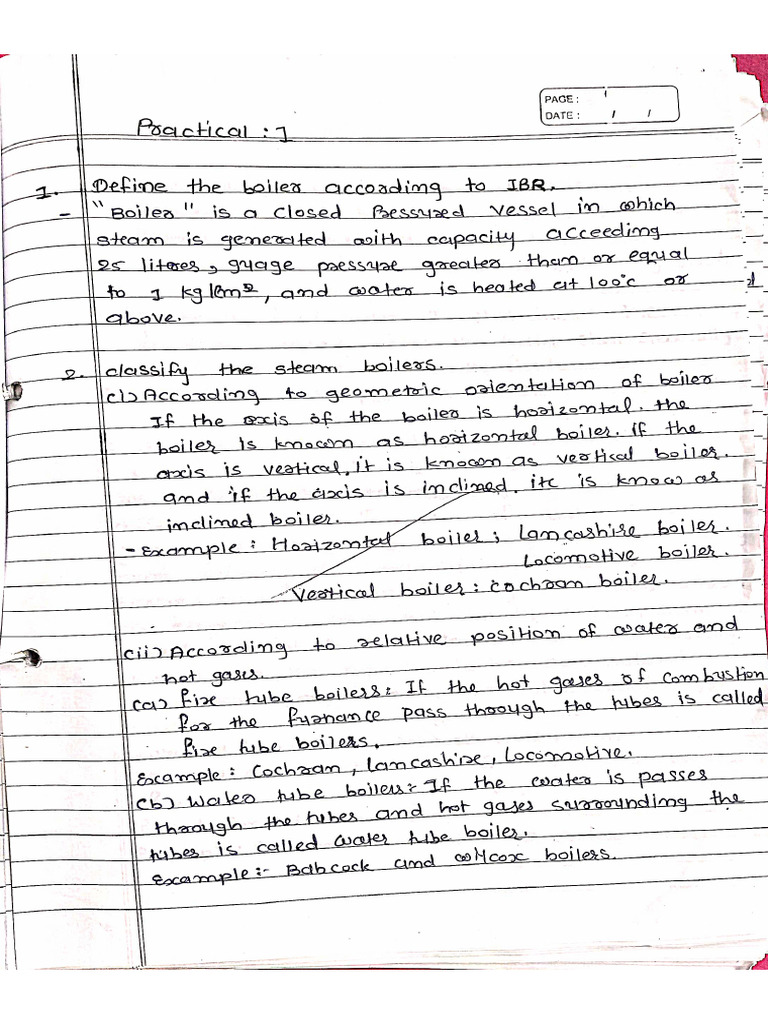 PAGE : 1
DATE : / /
Practical : 1
1. Define the boiler according to IBR.
- "Boiler" is a closed Pressured vessel in which
steam is generated with capacity acceeding
25 litores, guage pressure greater than or equal
to 1 kg/cm², and water is heated at 100°c or
above.
2. classify the steam boilers.
(i) According to geometric orientation of boiler
If the axis of the boiler is horizontal. the
boiler is known as horizontal boiler. if the
axis is vertical, it is known as vertical boiler.
and if the axis is inclined. itc is know as
inclined boiler.
- Example : Horizontal boiler ; Lancashire boiler.
Locomotive boiler.
Vertical boiler : cochran boiler.
(ii) According to relative position of water and
hot gases.
(a) fire tube boilers : If the hot gases of combustion
for the furnance pass through the tubes is called
fire tube boilers.
Example : Cochran, Lancashire, Locomotive.
(b) Water tube boilers :- If the water is passes
through the tubes and hot gases surrounding the
tubes is called water tube boiler.
Example :- Babcock and wilcox boilers.